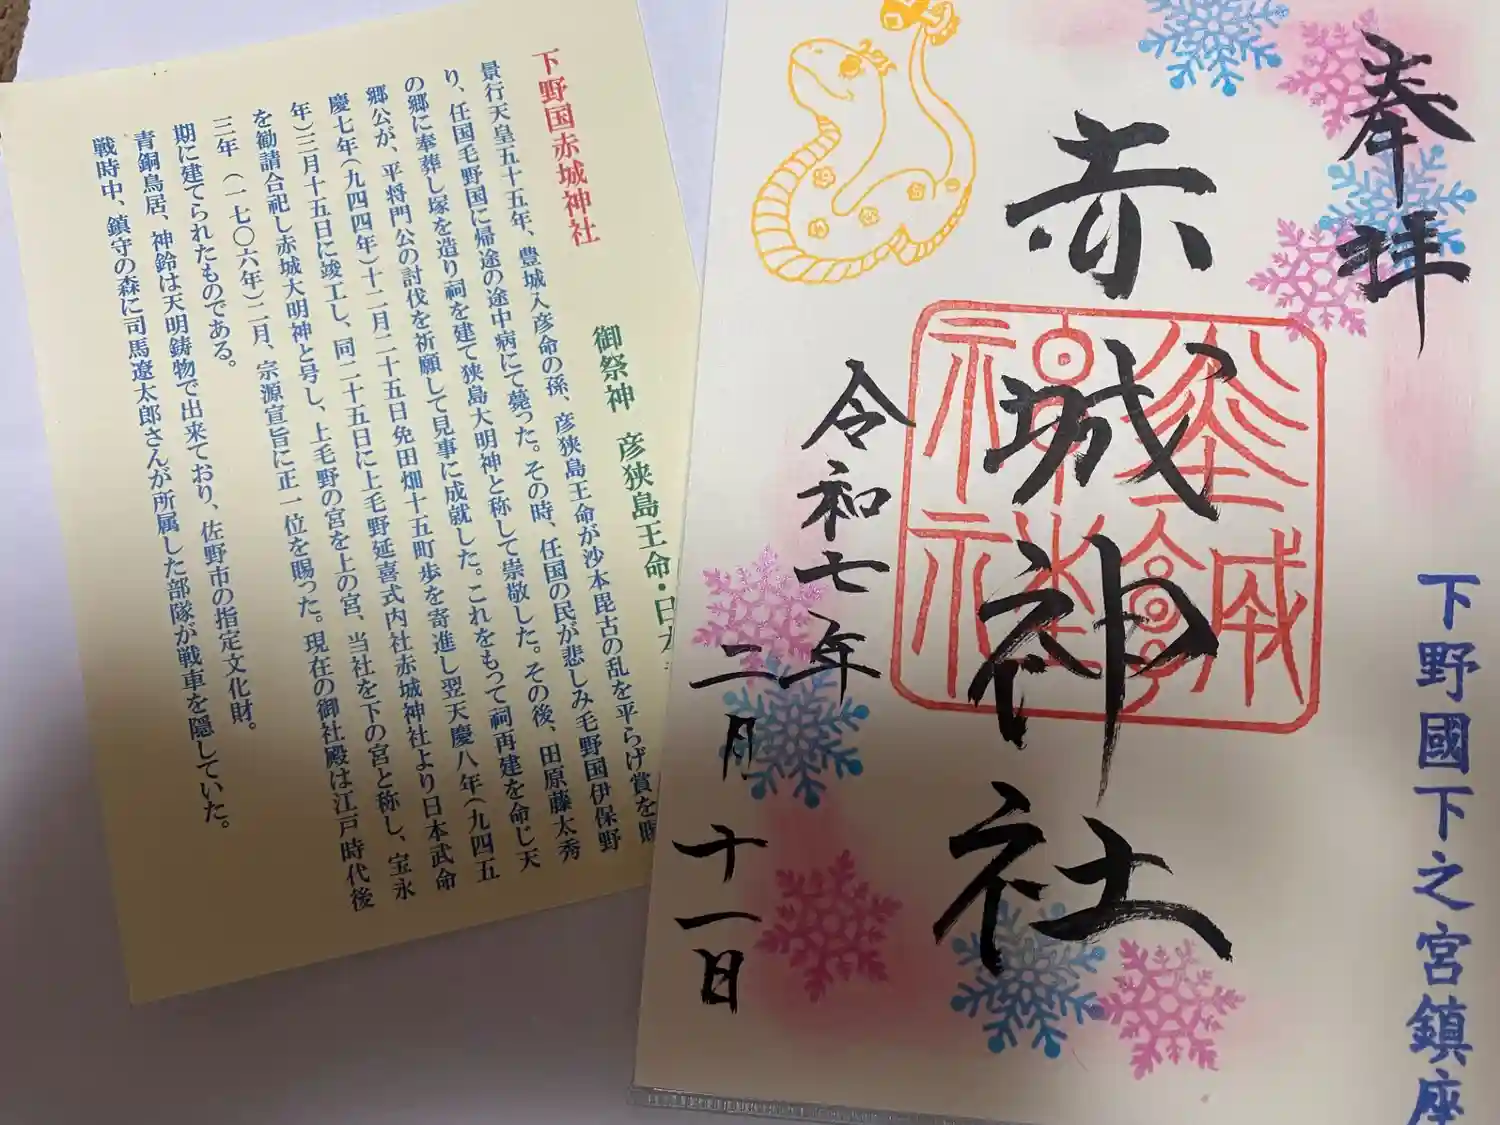 下野国赤城神社
御祭神 彦狭島王命・日本
景行天皇五十五年、豊城入彦命の孫、彦狭島王命が沙本毘古の乱を平らげ賞を賜
り、任国毛野国に帰途の途中病にて薨った。その時、任国の民が悲しみ毛野国伊保野
の郷に奉葬し塚を造り祠を建て狭島大明神と称して崇敬した。その後、田原藤太秀
郷公が、平将門公の討伐を祈願して見事に成就した。これをもって祠再建を命じ天
慶七年(九四四年)十二月二十五日免田畑十五町歩を寄進し翌天慶八年(九四五
年)三月十五日に竣工し、同二十五日に上毛野延喜式内社赤城神社より日本武命
を勧請合祀し赤城大明神と号し、上毛野の宮を上の宮、当社を下の宮と称し、宝永
三年(一七〇六年)二月、宗源宣旨に正一位を賜った。現在の御社殿は江戸時代後
期に建てられたものである。
青銅鳥居、神鈴は天明鋳物で出来ており、佐野市の指定文化財。
戦時中、鎮守の森に司馬遼太郎さんが所属した部隊が戦車を隠していた。
下野國下之宮鎮座
奉拝
赤城神社
令和七年
二月十一日